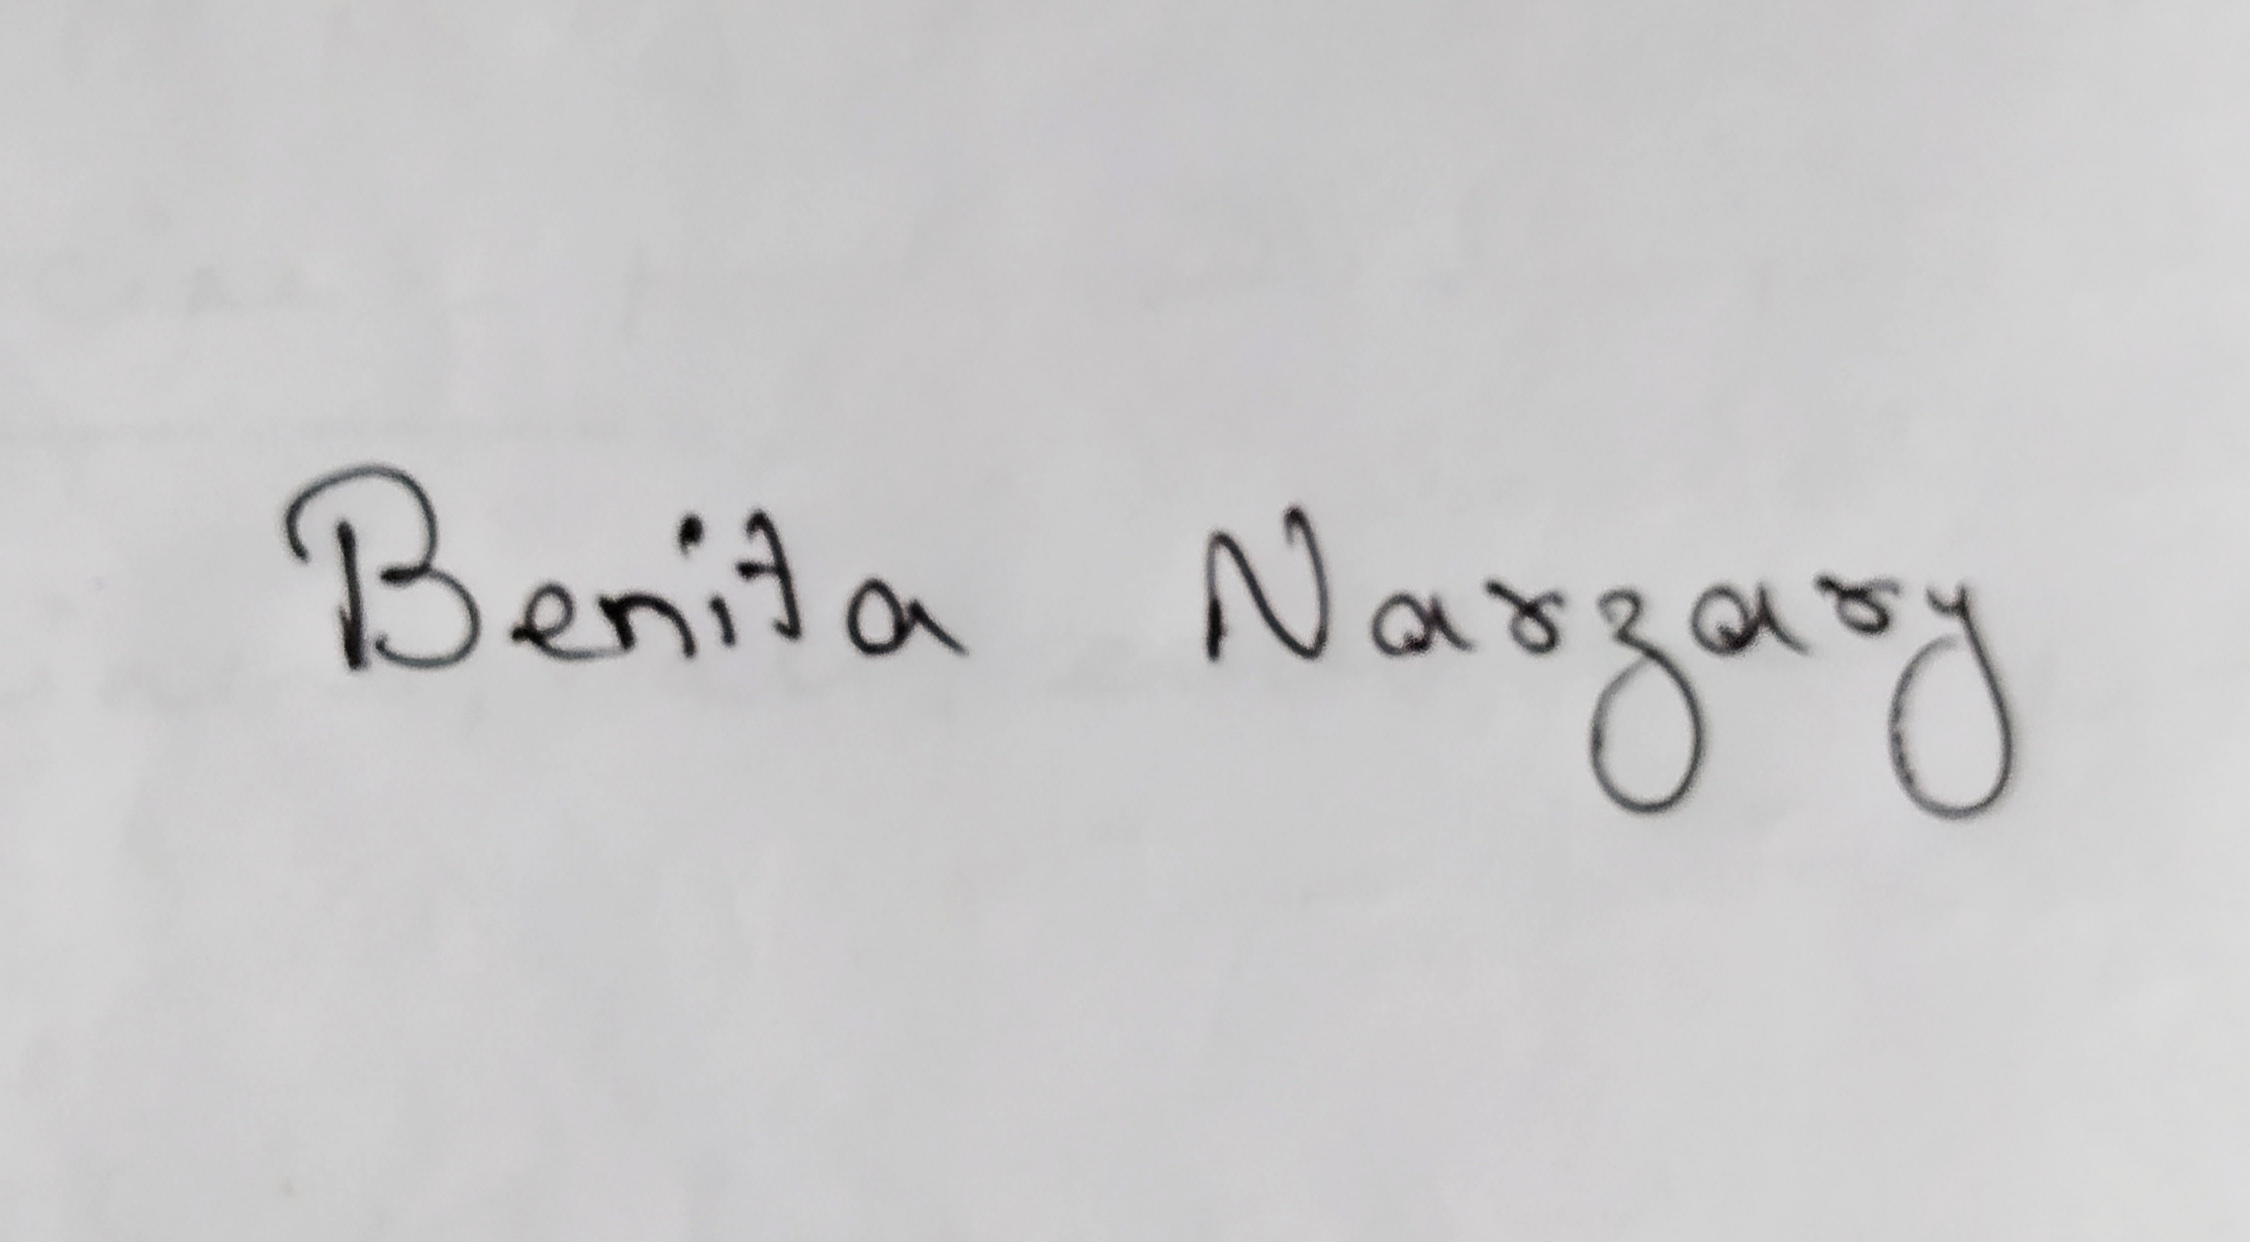 Benita Narzary